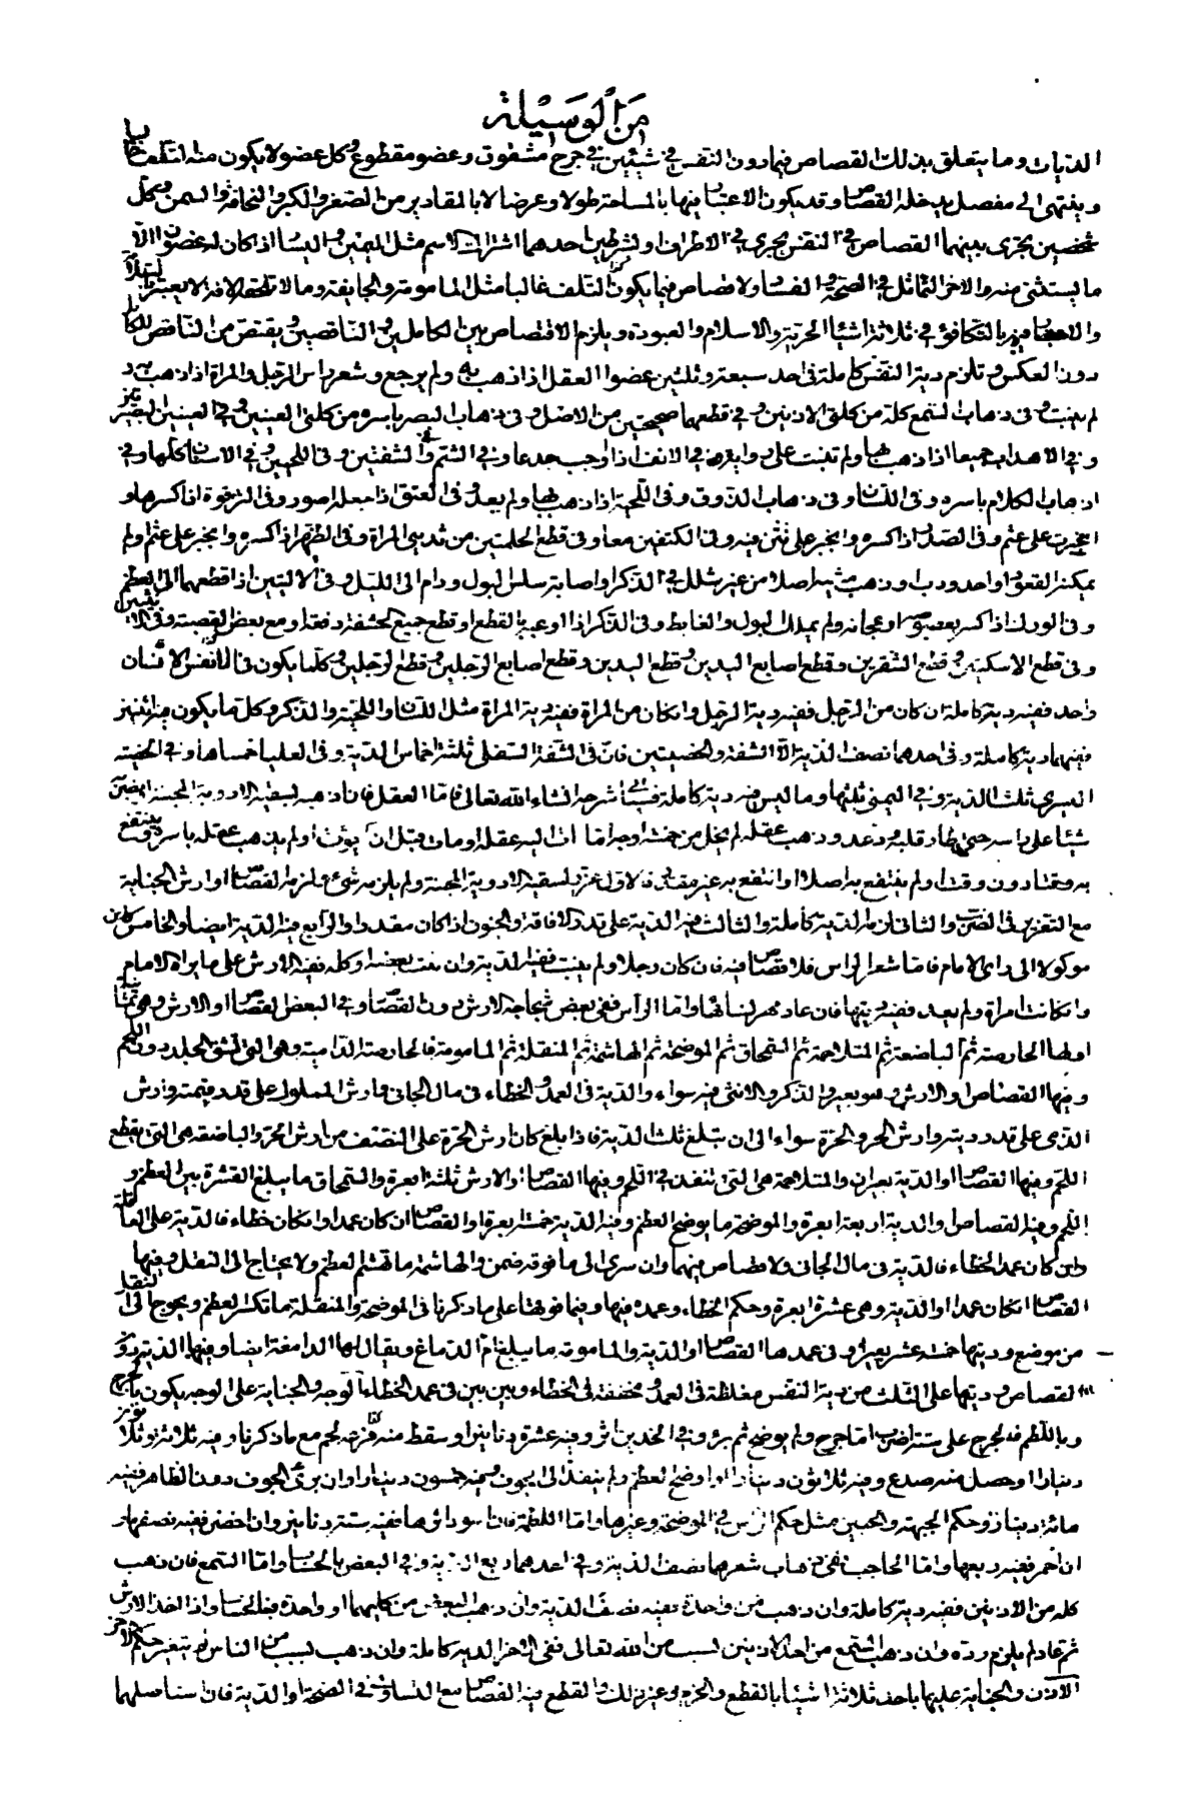 من الوسيلة
الديات وما يتعلق بذلك القصاص فيما دون النفس في شيئين في جرح مشقوق وعضو مقطوع وكل عضو لا يكون منه اتلافها
وينتهى الى مفصل يدخله القصاص وقد يكون الاعتبار فيها بالمساحة طولا وعرضا لا بالمقادير من الصغر والكبر والنحافة والسمن وكل
شخصين يجرى بينهما القصاص في النفس يجرى في الاطراف وبشرطين احدهما اشتراك الاسم مثل اليمين واليسار اذا كان له عضوان الا
ما يستثنى منه والاخر التماثل في الصحة والفساد ولا قصاص فيما يكون التلف غالبا مثل المامومة والجايفة وما لا
والاعتبار فيه بالتكافؤ في ثلاثة اشياء الحرية والاسلام والعبودة ويلزم الاقتصاص بين الكاملين والناقصين ويقتص من الناقص للكامل
دون العكس وتلزم دية النفس كاملة فى احد سبعة وثلثين عضوا العقل اذا ذهب به ولم يرجع وشعر راس الرجل والمراة اذا ذهب به و
لم ينبت وفى ذهاب السمع كله من كلتى الاذنين وفي قطعهما صحيحتين من الاصل وفى ذهاب البصر باسره من كلتى العينين وفي العينين
وفي الاهداب جميعا اذا ذهب بها ولم تنبت على وفي الانف اذا اوجب جدعا وفي الشم والشفتين وفى اللحيين وفي الاسنان كلها وفي
اذهاب الكلام باسره وفى اللسان وفى ذهاب الذوق وفى اللحية اذا ذهب بها ولم يعد وفى العنق اذا جعله اصور وفى الترقوة اذا كسرها و
انجبرت على عثم وفى الصلب اذا كسره وانجبر على وفى الكتفين معا وفى قطع الحلمتين من ثديى المراة وفى الظهر اذا كسره وانجبر على عثم ولم
يمكنه القعود او احدودب او ذهب مشيه اصلا من غير شلل في الذكر واصابة سلس البول ودام الى الليل وفى الاليتين اذا قطعهما الى العظم
وفى الورك اذا كسر بعصوصه او عجانه ولم يملك البول والغايط وفى الذكر اذا اوعب بالقطع او قطع جميع الحشفة دفعة او مع بعض القصبة وفى الانثيين
وفى قطع الاسكتين وفي قطع الشفرين وقطع اصابع اليدين وقطع اليدين وقطع اصابع الرجلين وقطع الرجلين وكلما يكون فى الانفس الانسان
واحد ففيه دية كاملة ان كان من الرجل ففيه دية الرجل وان كان من المراة ففيه دية المراة مثل اللسان واللحية والذكر وكل ما يكون منه اثنين
ففيهما دية كاملة وفى احدهما نصف الدية الا الشفة والخصيتين فان فى الشفة السفلى ثلثة اخماس الدية وفى العليا خمساها وفي الخصية
اليسرى ثلث الدية وفي اليمنى ثلثها وما ليس فيه دية كاملة فسياتى شرحه انشاء الله تعالى فاما العقل فان اذهبه بسقيه الادوية المجنة او بضربه
شيئا على راسه حتى طار قلبه وذعره وذهب عقله لم يخل من خمسة اوجه اما اثاب اليه عقله او مات قبل ان يؤب او لم يذهب عقله باسره وينتفع
به وقتا دون وقت او لم ينتفع به اصلا او انتفع به غير مقدر فالاول عزر بسقيه الادوية المجنة ولم يلزمه شئ ويلزمه القصاص او ارش الجناية
مع التعزير فى الضرب والثانى لزمه الدية كاملة والثالث فيه الدية على قدر الافاقة والجنون اذا كان مقدرا والرابع فيه الدية ايضا والخامس كان
موكولا الى راى الامام فاما شعر الراس فلا قصاص فيه فان كان رجلا ولم ينبت ففيه الدية وان نبت بعضه او كله ففيه الارش على ما يراه الامام
وان كانت امراة ولم يعد ففيه ديتها فان عاد مهر نسائها واما الراس ففى بعض شجاجه الارش دون القصاص وفي البعض القصاص او الارش وهى ثمان
اولها الحارصة ثم الباضعة ثم المتلاحمة ثم السمحاق ثم الموضحة ثم الهاشمة ثم المنقلة ثم المامومة فالحارصة الدامية وهى التى تشق الجلد دون اللحم
وفيها القصاص او الارش وهو بعير والذكر والانثى فيه سواء والدية فى العمد والخطاء فى مال الجانى وارش المملوك على قدر قيمته وارش
الذمى على قدر ديته وارش الحر والحرة سواء الى ان تبلغ ثلث الدية فاذا بلغ كان ارش الحرة على النصف من ارش الحر والباضعة هى التى يقطع
اللحم وفيها القصاص او الدية بعيران والمتلاحمة هى التى تنفذ في اللحم وفيها القصاص او الارش ثلثة ابعرة والسمحاق ما يبلغ القشرة بين العظم و
اللحم وفيه القصاص او الدية اربعة ابعرة والموضحة ما يوضح العظم وفيه الدية خمسة ابعرة او القصاص ان كان عمدا وان كان خطاء فالدية على العاقلة
وان كان عمد الخطاء فالدية فى مال الجانى ولا قصاص فيهما وان سرى الى ما فوقه ضمن والهاشمة ما تهشم العظم ولا يحتاج الى النقل وفيها
القصاص ان كان عمدا او الدية وهى عشرة ابعرة وحكم الخطاء وعمده فيها وفيما فوقها على ما ذكرنا فى الموضحة والمنقلة ما تكسر العظم ويحوج الى النقل
من موضع وديتها خمسة عشر بعيرا وفى عمدها القصاص او الدية والمامومة ما يبلغ ام الدماغ ويقال لها الدامغة ايضا وفيها الدية دون
القصاص وديتها على الثلث من دية النفس مغلظة فى العمد ومخففة فى الخطاء وبين بين فى عمد الخطاء الوجه والجناية على الوجه يكون بالجرح
وباللطم فالجرح على ستة اضرب اما جرح ولم يوضح ثم برؤ وفي الخدين اثر وفيه عشرة دنانير او سقط منه لحم مع ما ذكرنا وفيه ثلاثة وثلاثون
دينارا او حصل منه صدع وفيه ثلاثون دينارا او اوضح العظم ولم ينفذ الى الجوف وفيه خمسون دينارا وان برئ الجوف دون الظاهر ففيه
مائة دينار وحكم الجبهة والجبين مثل حكم الراس في الموضحة وغيرها واما اللطمة فان اسود اثرها ففيه ستة دنانير وان اخضر ففيه نصفها و
ان احمر ففيه ربعها واما الحاجب ففى ذهاب شعرهما نصف الدية وفي احدهما ربع الدية وفي البعض بالحساب واما السمع فان ذهب
كله من الاذنين ففيه دية كاملة وان ذهب من واحدة ففيه نصف الدية وان ذهب البعض من كليهما او واحدة فبالحساب واذا اخذ الارش
ثم عاد لم يلزم رده وان ذهب السمع من احد الاذنين بسبب من الله تعالى ففى الاخر الدية كاملة وان ذهب بسبب من الناس لم يتغير حكم الاخر
الاذن والجناية عليها باحد ثلاثة اشياء بالقطع والخرم وغير ذلك والقطع فيه القصاص مع التساوى في الصحة او الدية فان استاصلهما